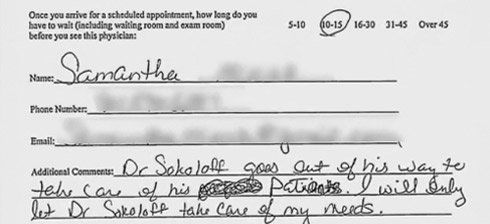 Once you arrive for a scheduled appointment, how long do you
have to wait (including waiting room and exam room) 5-10 10-15 16-30 31-45 Over 45
before you see this physician:
Name: Samantha
Phone Number:
Email:
Additional Comments: Dr Sokoloff goes out of his way to
take care of his Patients. I will only
let Dr Sokoloff take care of my needs.